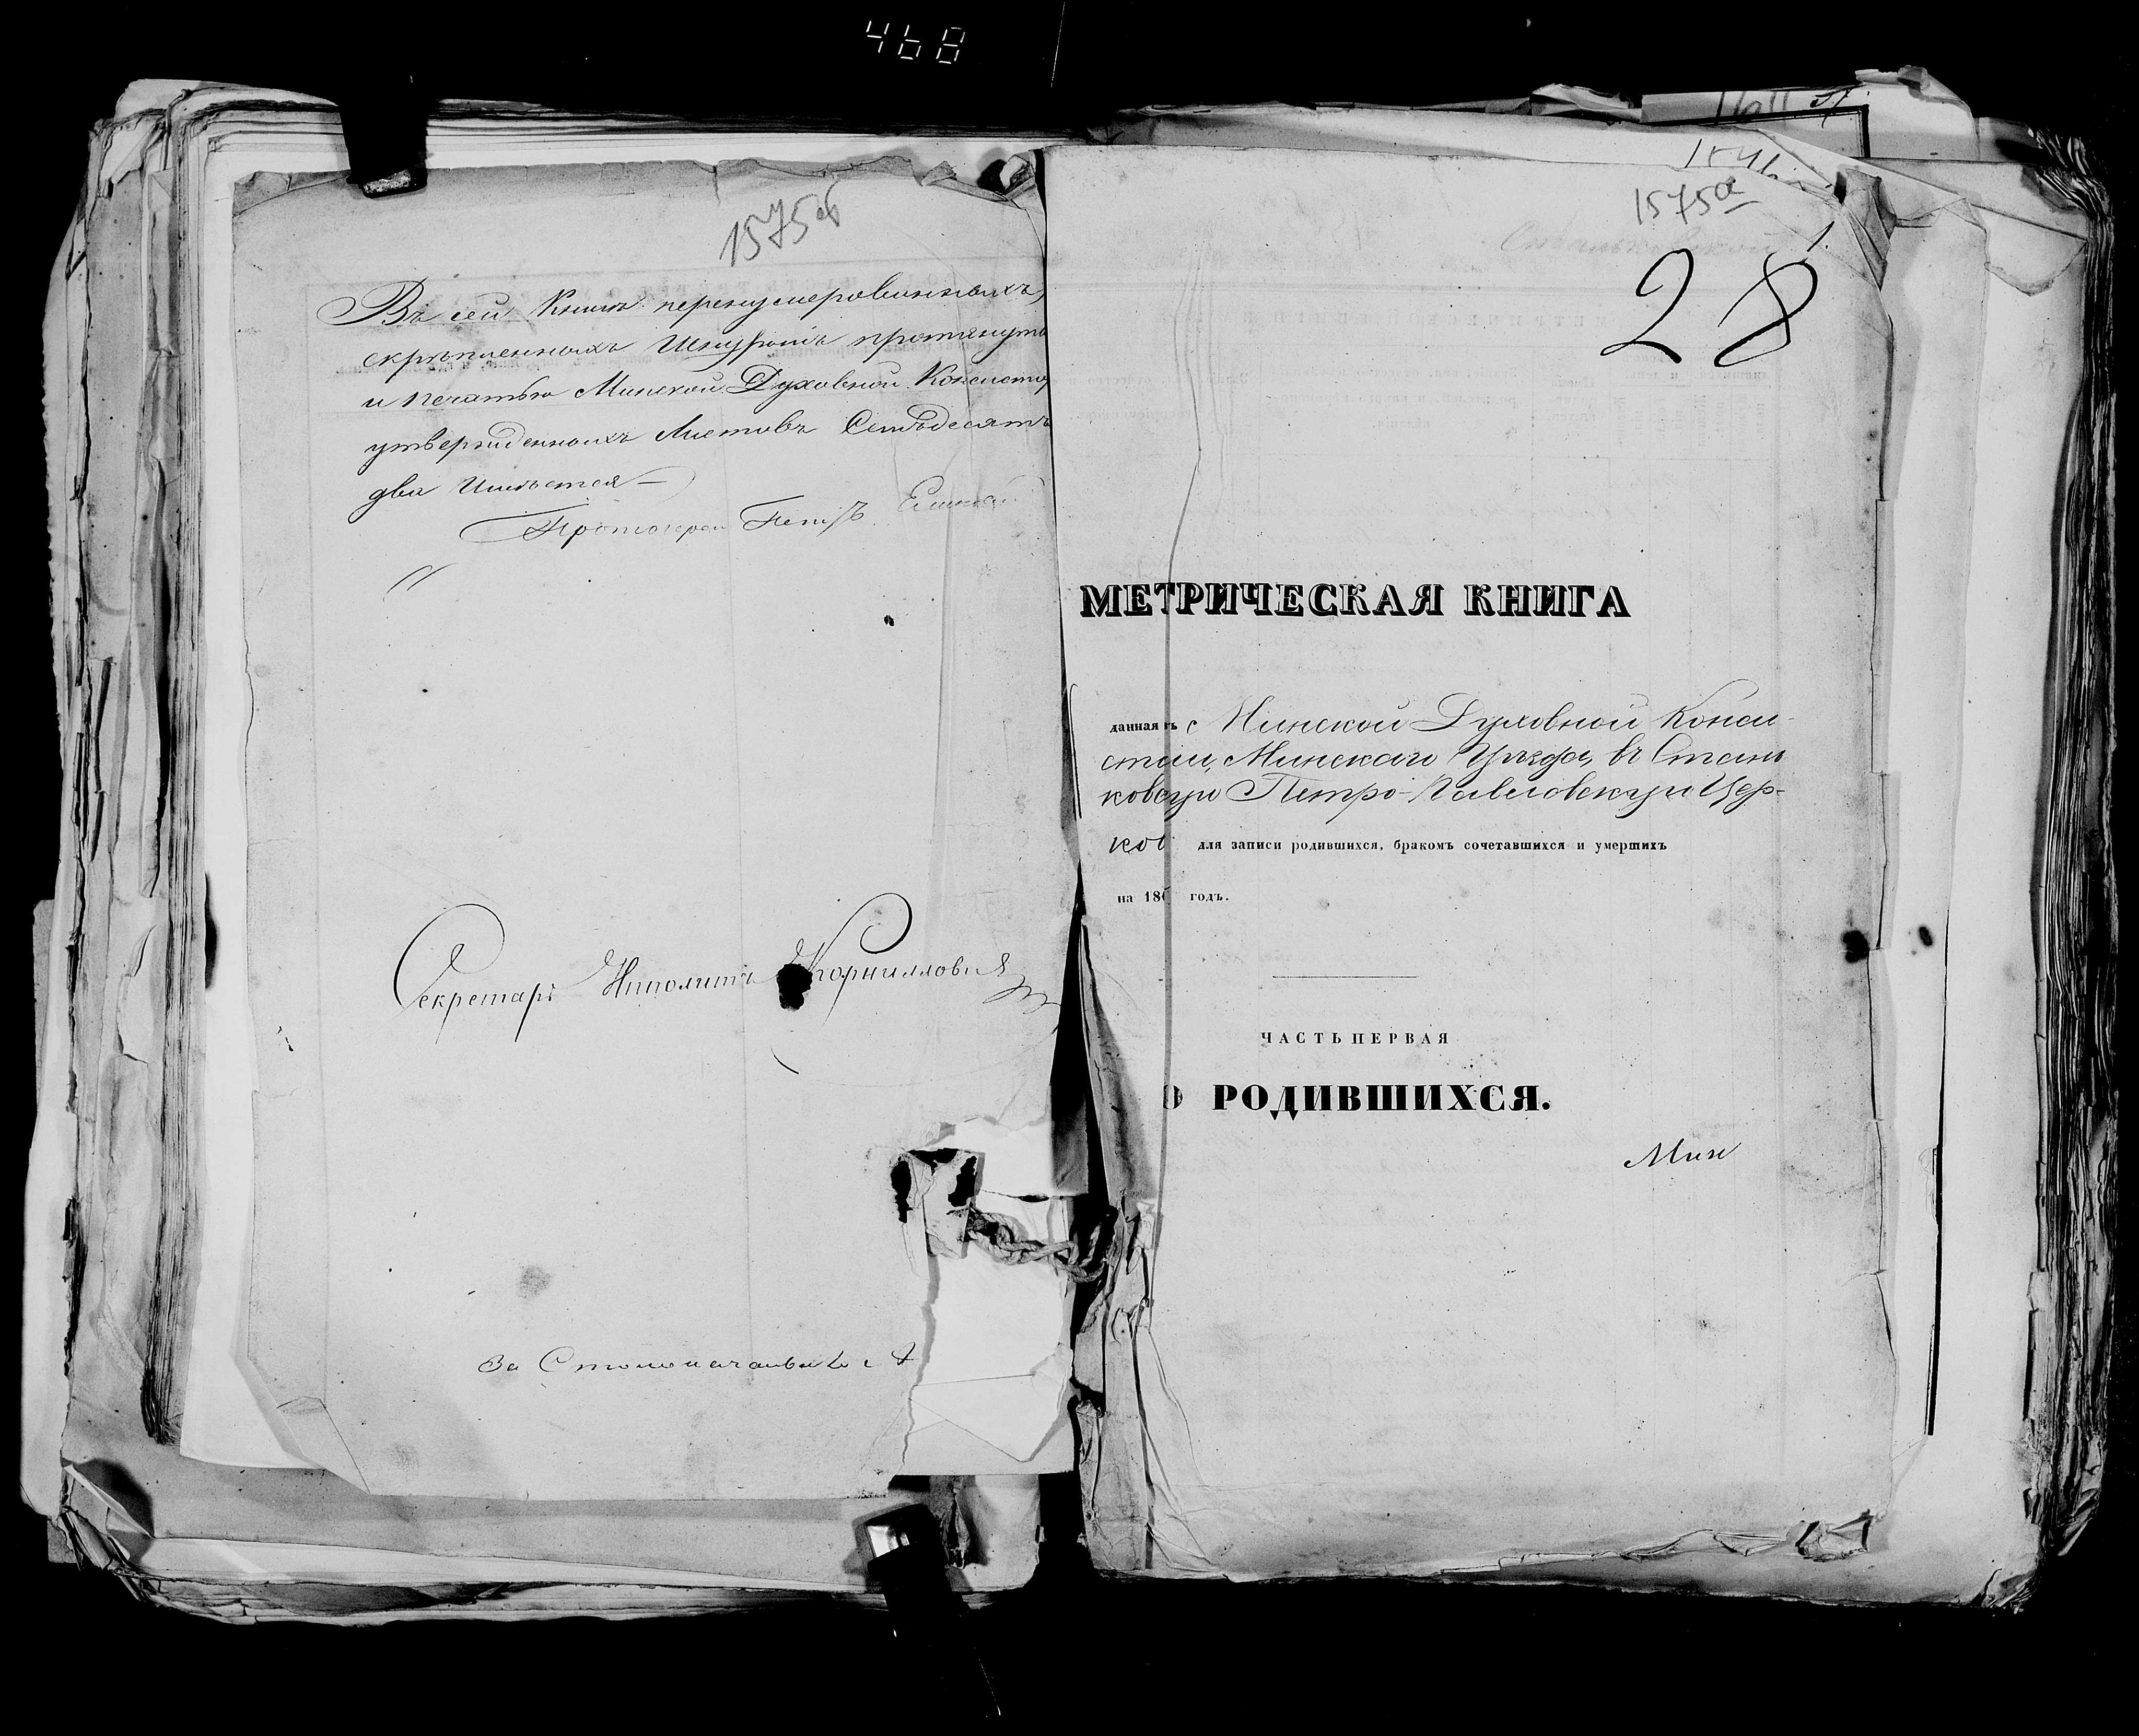 468
1575об
Въ сей Книгѣ перенумерованныхъ,
скрѣпленныхъ Шнуромъ протянуто
и печатью Минской Духовной Консистор
утвержденныхъ Листовъ Семьдесятъ
два Имѣется
Протоіерей Петръ
Секретарь Иполитъ Корниллович
За Столоначальника
1575а
1.
28
МЕТРИЧЕСКАЯ КНИГА
данная съ Минской Духовной Конси-
сторіи, Минскаго Уѣзда, въ Стань
ковскую Петро-Павловскую Цер-
ков для записи родившихся, бракомъ сочетавшихся и умершихъ
на 186 годъ.
ЧАСТЬ ПЕРВАЯ
О РОДИВШИХСЯ.
Мин